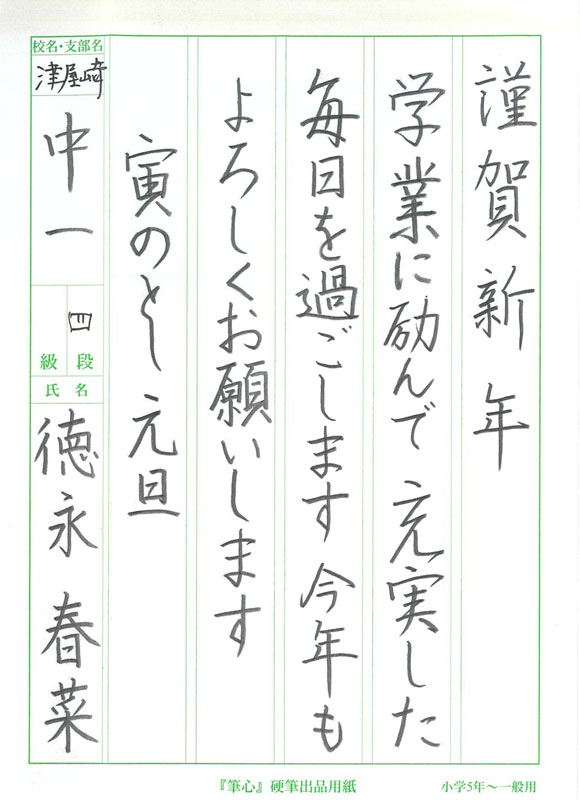 謹賀新年
学業に励んで充実した
毎日を過ごします今年も
よろしくお願いします
寅のとし元旦
校名・支部名
津屋崎
中一
四
級段
氏名
徳永春菜
『筆心』硬筆出品用紙
小学5年〜一般用